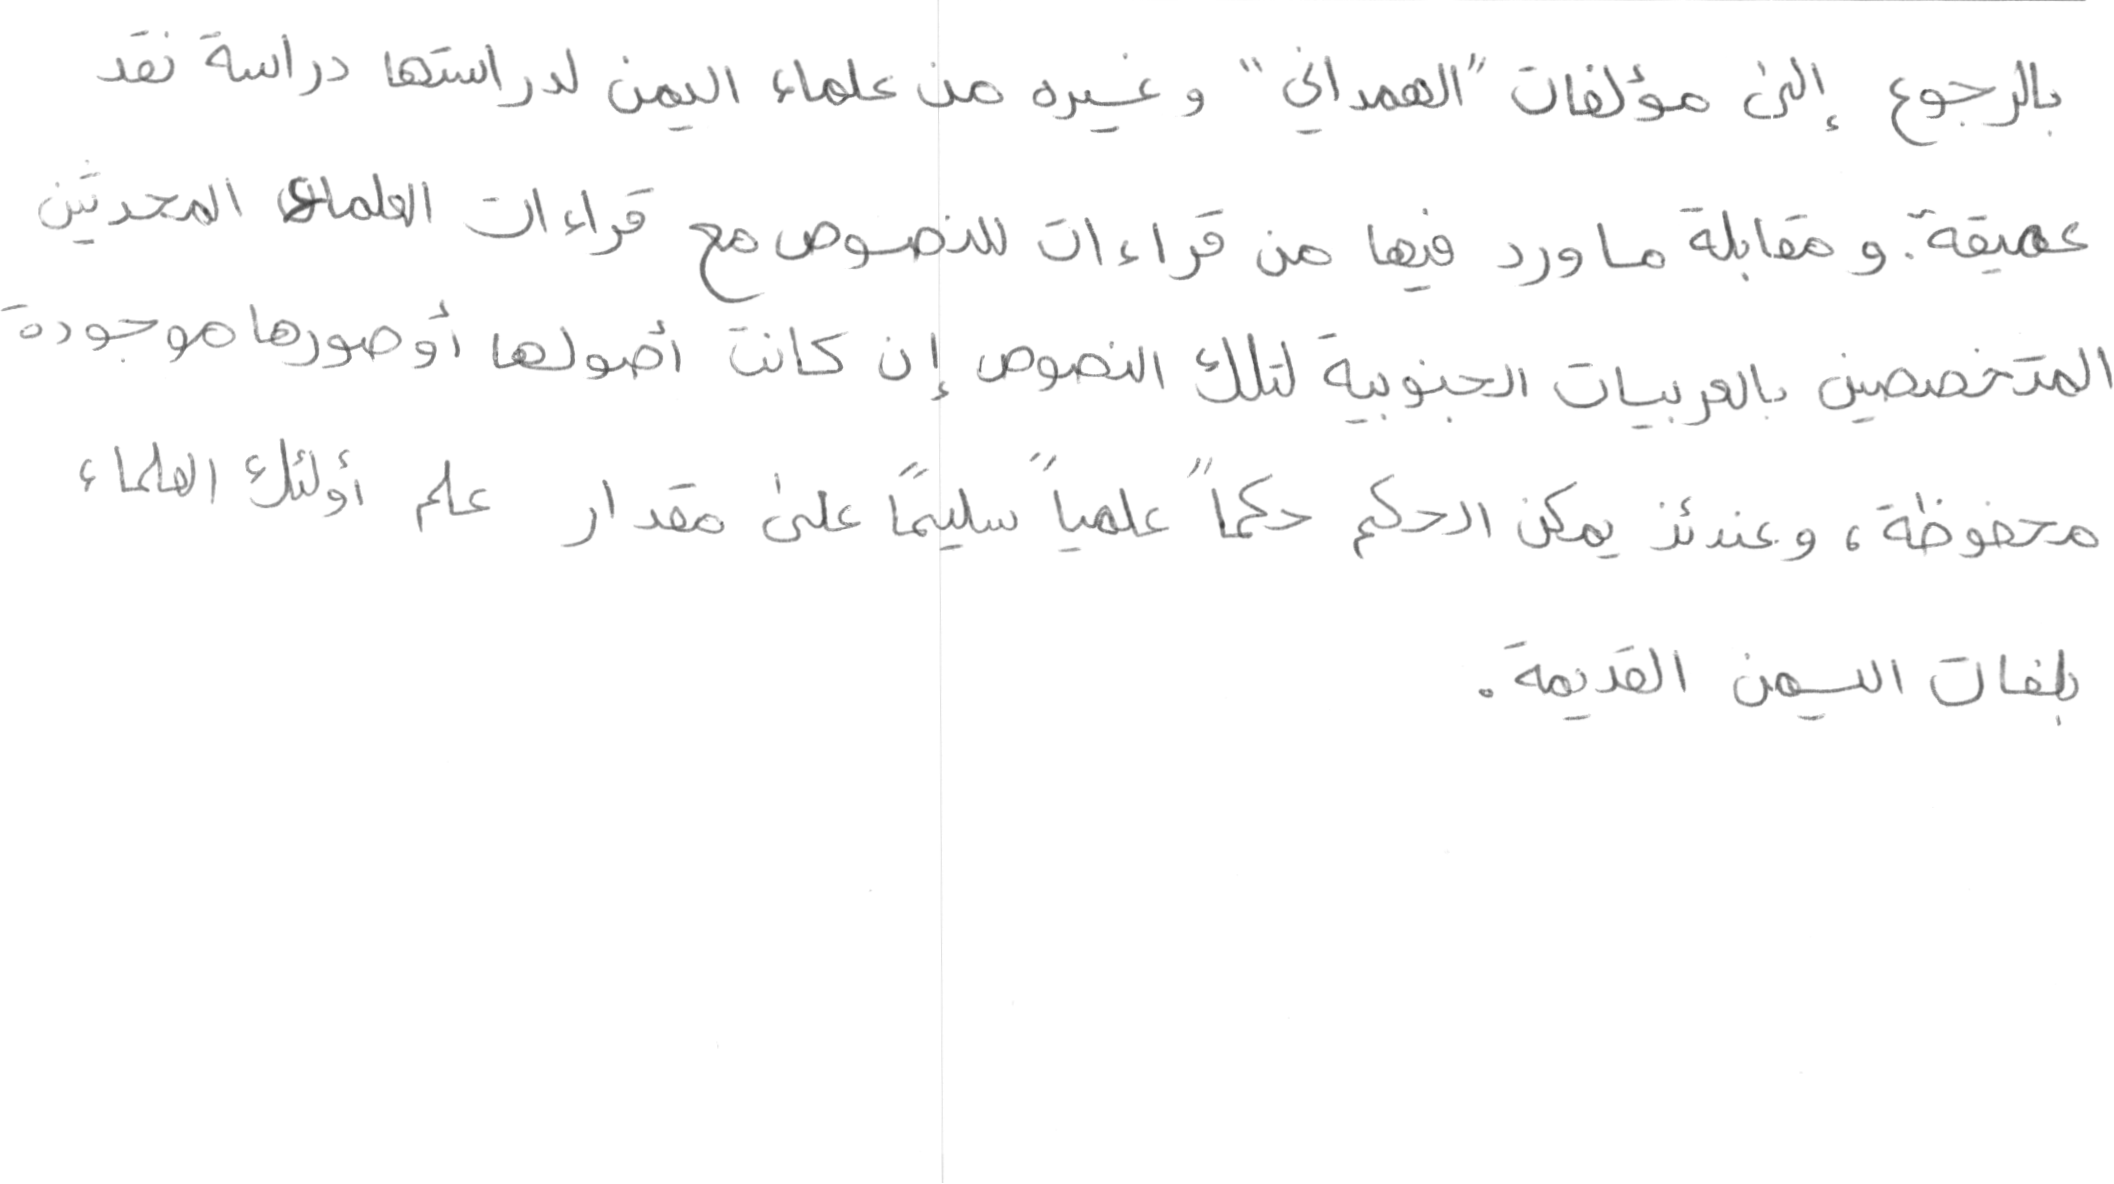 بالرجوع إلى مؤلفات "الهمداني" وغيره من علماء اليمن لدراستها دراسة نقد
عميقة. و مقابلة ما ورد فيها من قراءات للنصوص مع قراءات العلماء المحدثين
المتخصصين بالعربيات الجنوبية لتلك النصوص إن كانت أصولها أو صورها موجودة
محفوظة، وعندئذ يمكن الحكم حكماً علمياً سليمًا على مقدار علم أولئك العلماء
بلغات اليمن القديمة.